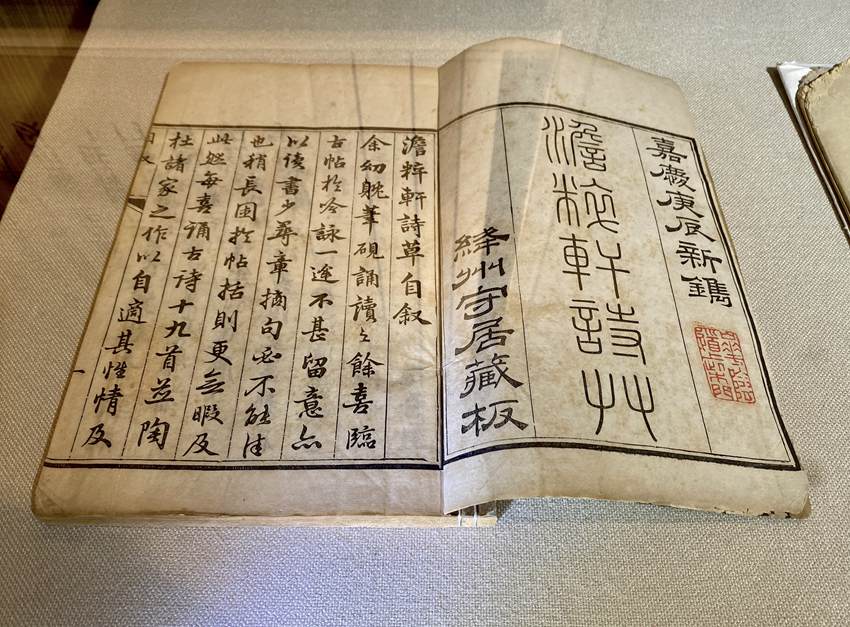 嘉慶庚辰新鐫
澹粹軒詩艸
絳州守居藏板
澹粹軒詩草自叙
余幼躭筆硯誦讀之餘喜臨
古帖於吟詠一途不甚留意亦
以讀書少尋章摘句必不能佳
也稍長囿於帖括則更無暇及
此然每喜誦古詩十九首並陶
杜諸家之作以自適其性情及